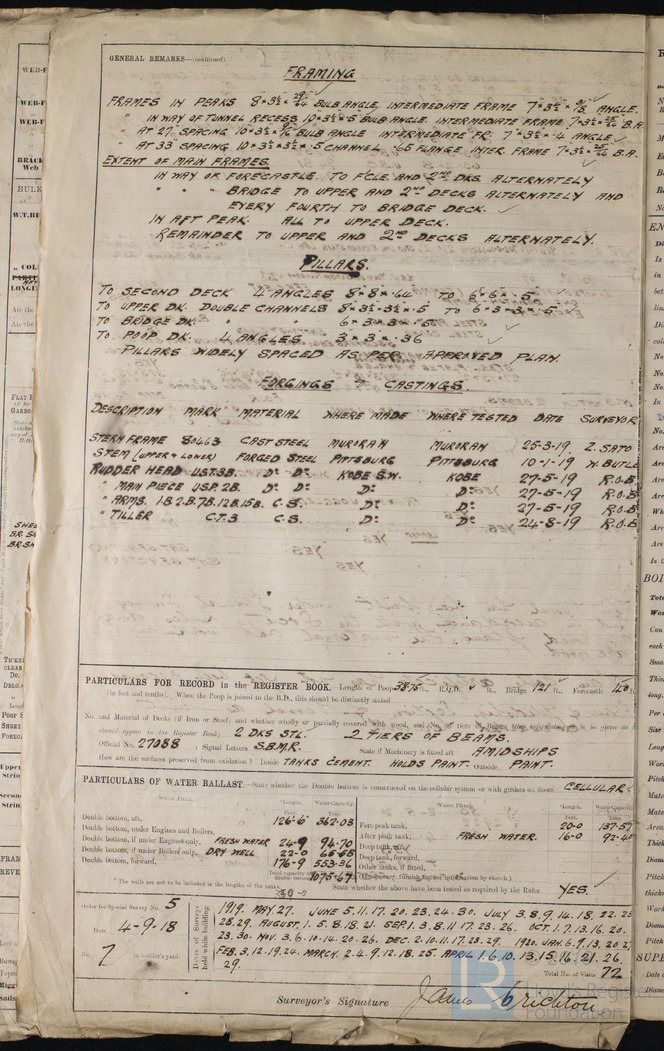 GENERAL REMARKS—(continued).
FRAMING
FRAMES IN PEAKS 8 × 3½ × 29/64 BULB ANGLE, INTERMEDIATE FRAME 7 × 3½ × ANGLE.
" IN WAY OF TUNNEL RECESS 10 × 3½ × .5 BULB ANGLE. INTERMEDIATE FRAME 7 × 3½ × 25/64 B.A.
" AT 27 SPACING 10 × 3½ × BULB ANGLE INTERMEDIATE FR. 7 × 3½ × .4 ANGLE
" AT 33 SPACING 10 × 3½ × 3½ × .5 CHANNEL .65 FLANGE INTER. FRAME 7 × 3½ × 25/64 B.A.
EXTENT OF MAIN FRAMES.
IN WAY OF FORECASTLE. TO F'CLE AND 2ND DKS. ALTERNATELY
" " " BRIDGE TO UPPER AND 2ND DECKS ALTERNATELY AND
EVERY FOURTH TO BRIDGE DECK.
IN AFT PEAK. ALL TO UPPER DECK.
REMAINDER TO UPPER AND 2ND DECKS ALTERNATELY.
PILLARS.
TO SECOND DECK 4 ANGLES 8 × 8 × .64 TO 6 × 6 × .5
TO UPPER DK. DOUBLE CHANNELS 8 × 3½ × 3½ × .5 TO 6 × 3 × 3 × .5
TO BRIDGE DK. 6 × 3 × 3 × .5
TO POOP DK. 4 ANGLES. 3 × 3 × .36
PILLARS WIDELY SPACED AS PER APPROVED PLAN.
FORGINGS & CASTINGS.
DESCRIPTION MARK MATERIAL WHERE MADE WHERE TESTED DATE SURVEYOR
STERN FRAME 80463 CAST STEEL MURORAN MURORAN 25-3-19 Z. SATO
STEM (UPPER & LOWER) FORGED STEEL PITTSBURG PITTSBURG 10-1-19 W. BUTLE
RUDDER HEAD U.S.T.3B. Do Do KOBE S.W. KOBE 27-5-19 R.O.B
" MAIN PIECE U.S.P. 2B. Do Do Do Do 27-5-19 R.O.B
" ARMS. 1B.2.B.7B.12B.15B. C.S. Do Do 27-5-19 R.O.B
" TILLER C.T.3 C.S. Do Do 24-8-19 R.O.B
PARTICULARS FOR RECORD in the REGISTER BOOK. Length of Poop 38.75 ft., R.Q.D. ft., Bridge 121 ft., Forecastle 40 ft.
(in feet and tenths). When the Poop is joined to the B.D., this should be distinctly stated
No. and Material of Decks (if Iron or Steel) and whether wholly or partially covered with wood, and No. of tiers of Beams
should appear in the Register Book) 2 DKS STL. 2 TIERS OF BEAMS.
Official No. 27088 ; Signal Letters S.B.M.R. State if Machinery is fitted aft AMIDSHIPS
How are the surfaces preserved from oxidation? Inside TANKS CEMENT. HOLDS PAINT. Outside PAINT.
PARTICULARS OF WATER BALLAST.—State whether the Double bottom is constructed on the cellular system or with girders on floors CELLULAR.
Where Fitted. Length. Water Capacity. Where Fitted. Length. Water Capacity.
Double bottom, aft, 126-6 362.03 Fore peak tank, 20-0 137.57
Double bottom, under Engines and Boilers, After peak tank, FRESH WATER. 16-0 92.40
Double bottom, if under Engines only, FRESH WATER 24-9 94.70 Deep tank, aft,
Double bottom, if under Boilers only, DRY WELL 22-0 Deep tank, forward,
Double bottom, forward, 176-9 553.36 Other tanks, if fitted,
1075.67
* The wells are not to be included in the lengths of the tanks. State whether the above have been tested as required by the Rules YES.
Order for Special Survey No. 5
Date 4-9-18
No. 7 in builder's yard.
Dates of Surveys held while building
1919. MAY 27. JUNE 5. 11. 17. 20. 23. 24. 30. JULY 3. 8. 9. 14. 18. 22. 25
28. 29. AUGUST. 1. 5. 8. 18. 21. SEP. 1. 3. 8. 11 17. 23. 26. OCT. 1. 7. 13. 16. 20.
23. 30. NOV. 3. 6. 10. 14. 20. 26. DEC. 2. 10. 11. 17. 23. 29. 1920. JAN. 6. 9. 13. 20. 2
FEB. 3. 12. 19. 24. MARCH. 2. 4. 9. 12. 18. 25. APRIL 1. 6. 10. 13. 15. 16. 21. 26
29.
Total No. of Visits 72
Surveyor's Signature James Crichton
Lloyd's Register
Foundation